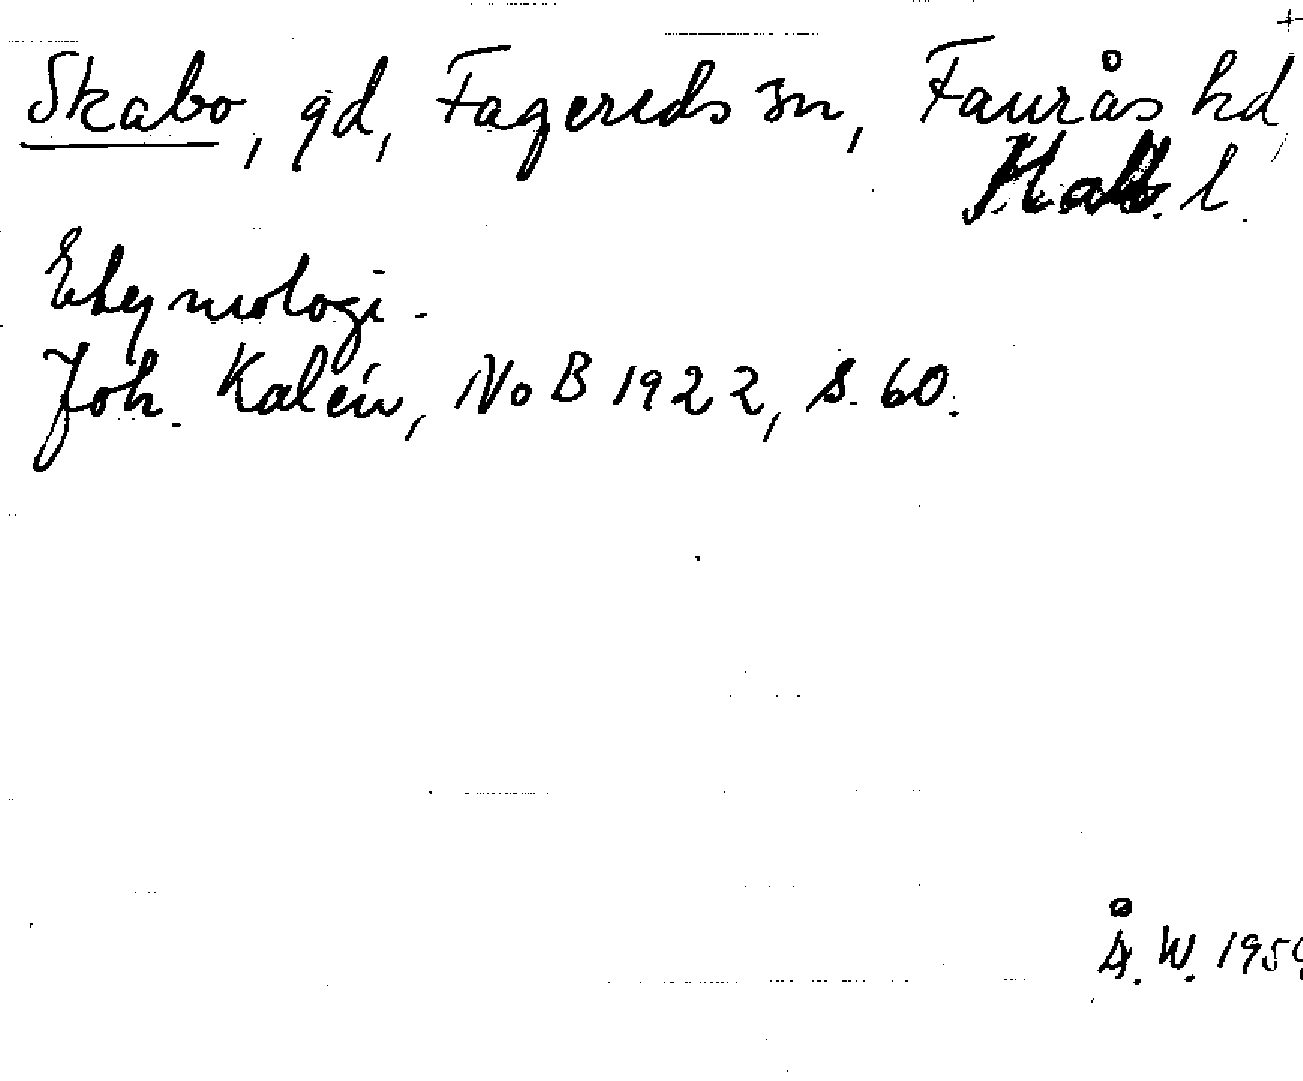 +
Skabo, gd, Fagereds sn, Faurås hd,
Hall. l.
Etymologi.
Joh. Kalén, NoB 1922, s. 60.
Å. W.